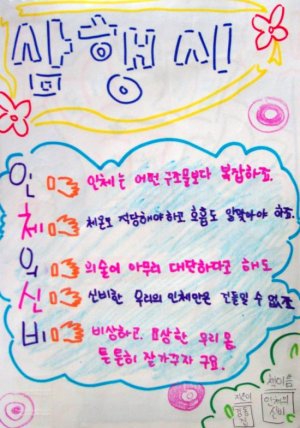 삼행시
인 인체는 어떤 구조물보다 복잡하죠.
체 체온도 적당해야하고 호흡도 알맞아야 하죠.
의 의술이 아무리 대단하다고 해도
신 신비한 우리의 인체만은 건들일 수 없죠
비 비상하고, 묘상한 우리 몸,
튼튼히 잘 가꾸자구요.
책이름
인체의
신비
지은이